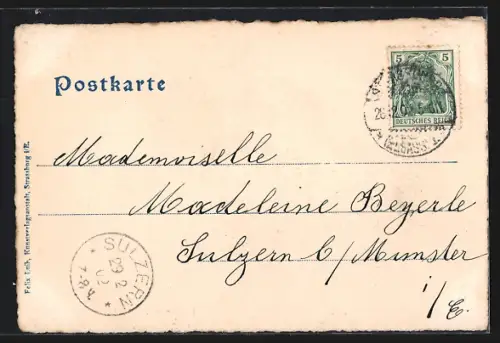 Postkarte
5 5
DEUTSCHES REICH
Mademoiselle
Madeleine Beyerle
Sulzern b/Munster
i/E.
SULZERN
29 2
02
7-8V.
Felix Luib, Kunstverlagsanstalt, Strassburg i/E.